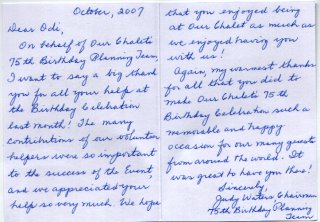 October, 2007
Dear Odi,
On behalf of Our Chalet's
75th Birthday Planning Team,
I want to say a big thank
you for all your help at
the Birthday Celebration
last month! The many
contributions of our volunteer
helpers were so important
to the success of the Event
and we appreciated your
help so very much. We hope
that you enjoyed being
at Our Chalet as much as
we enjoyed having you
with us!
Again, my warmest thanks
for all that you did to
make Our Chalet's 75th
Birthday Celebration such a
memorable and happy
occasion for our many guests
from around the world. It
was great to have you there!
Sincerely,
Judy Waters Chairman
75th Birthday Planning
Team